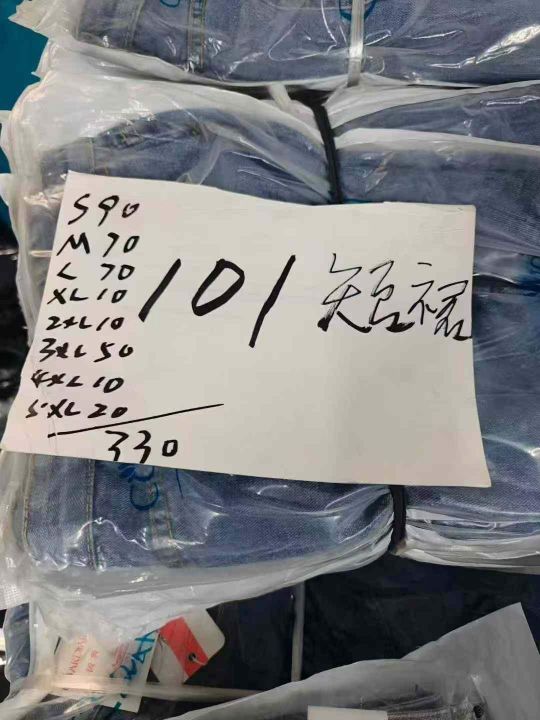 S 90
M 70
L 70
XL 10
2XL 10
3XL 50
4XL 10
5XL 20
330
101 短裙